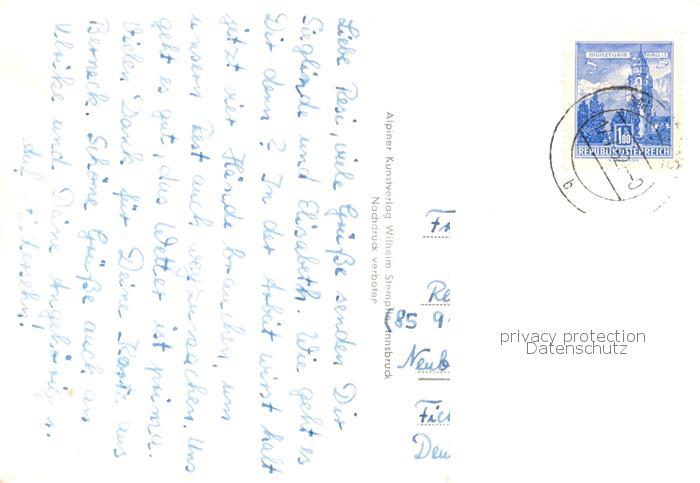 Liebe Resi, viele Grüße senden Dir
Sieglinde und Elisabeth. Wie geht es
Dir denn? In der Arbeit wirst halt
jetzt vier Hände brauchen, um
unsern Rest auch wegzumachen. Uns
geht es gut, das Wetter ist prima.
Vielen Dank für Deine Karte aus
Berneck. Schöne Grüße auch an
Ulrike und Deine Angehörigen.
Auf Wiedersehn!
Alpiner Kunstverlag Wilhelm Stempfle Innsbruck
Nachdruck verboten
MÜNZTURM HALL i. T.
1 S 80
REPUBLIK ÖSTERREICH
b
Fr
Re
(85 9
Neub
Fich
Deu
privacy protection
Datenschutz